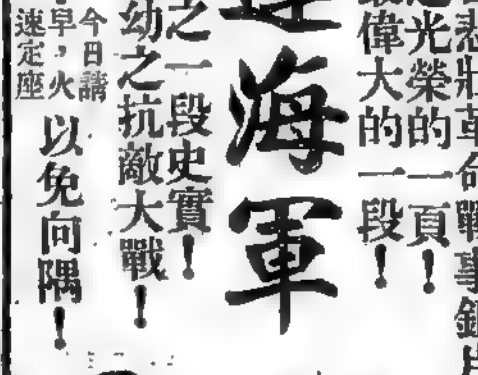 悲壯革命戰事
光榮的一頁！
偉大的一段！
海軍
之一段史實！
幼之抗敵大戰！
今日請
早，火
速定座
以免向隅！